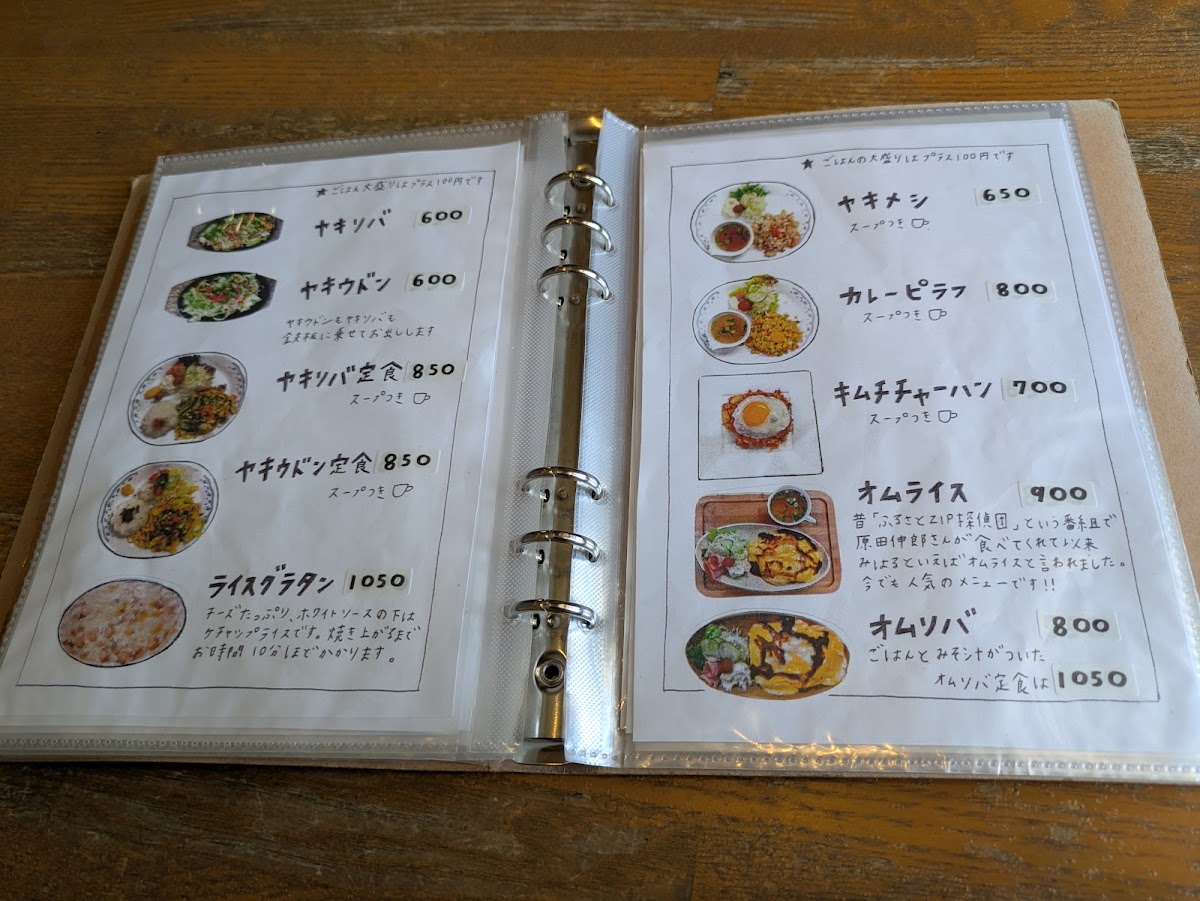 ★ ごはん大盛りはプラス100円です
ヤキソバ 600
ヤキウドン 600
ヤキウドンもヤキソバも
鉄板に乗せてお出しします
ヤキソバ定食 850
スープつき
ヤキウドン定食 850
スープつき
ライスグラタン 1050
チーズたっぷり、ホワイトソースの下は
ケチャップライスです。焼き上がるまで
お時間10分ほどかかります。
★ ごはんの大盛りはプラス100円です
ヤキメシ 650
スープつき
カレーピラフ 800
スープつき
キムチチャーハン 700
スープつき
オムライス 900
昔「ふるさとZIP探偵団」という番組で
原田伸郎さんが食べてくれて以来
みはるといえばオムライスと言われました。
今でも人気のメニューです!!
オムソバ 800
ごはんとみそシルがついた
オムソバ定食は 1050